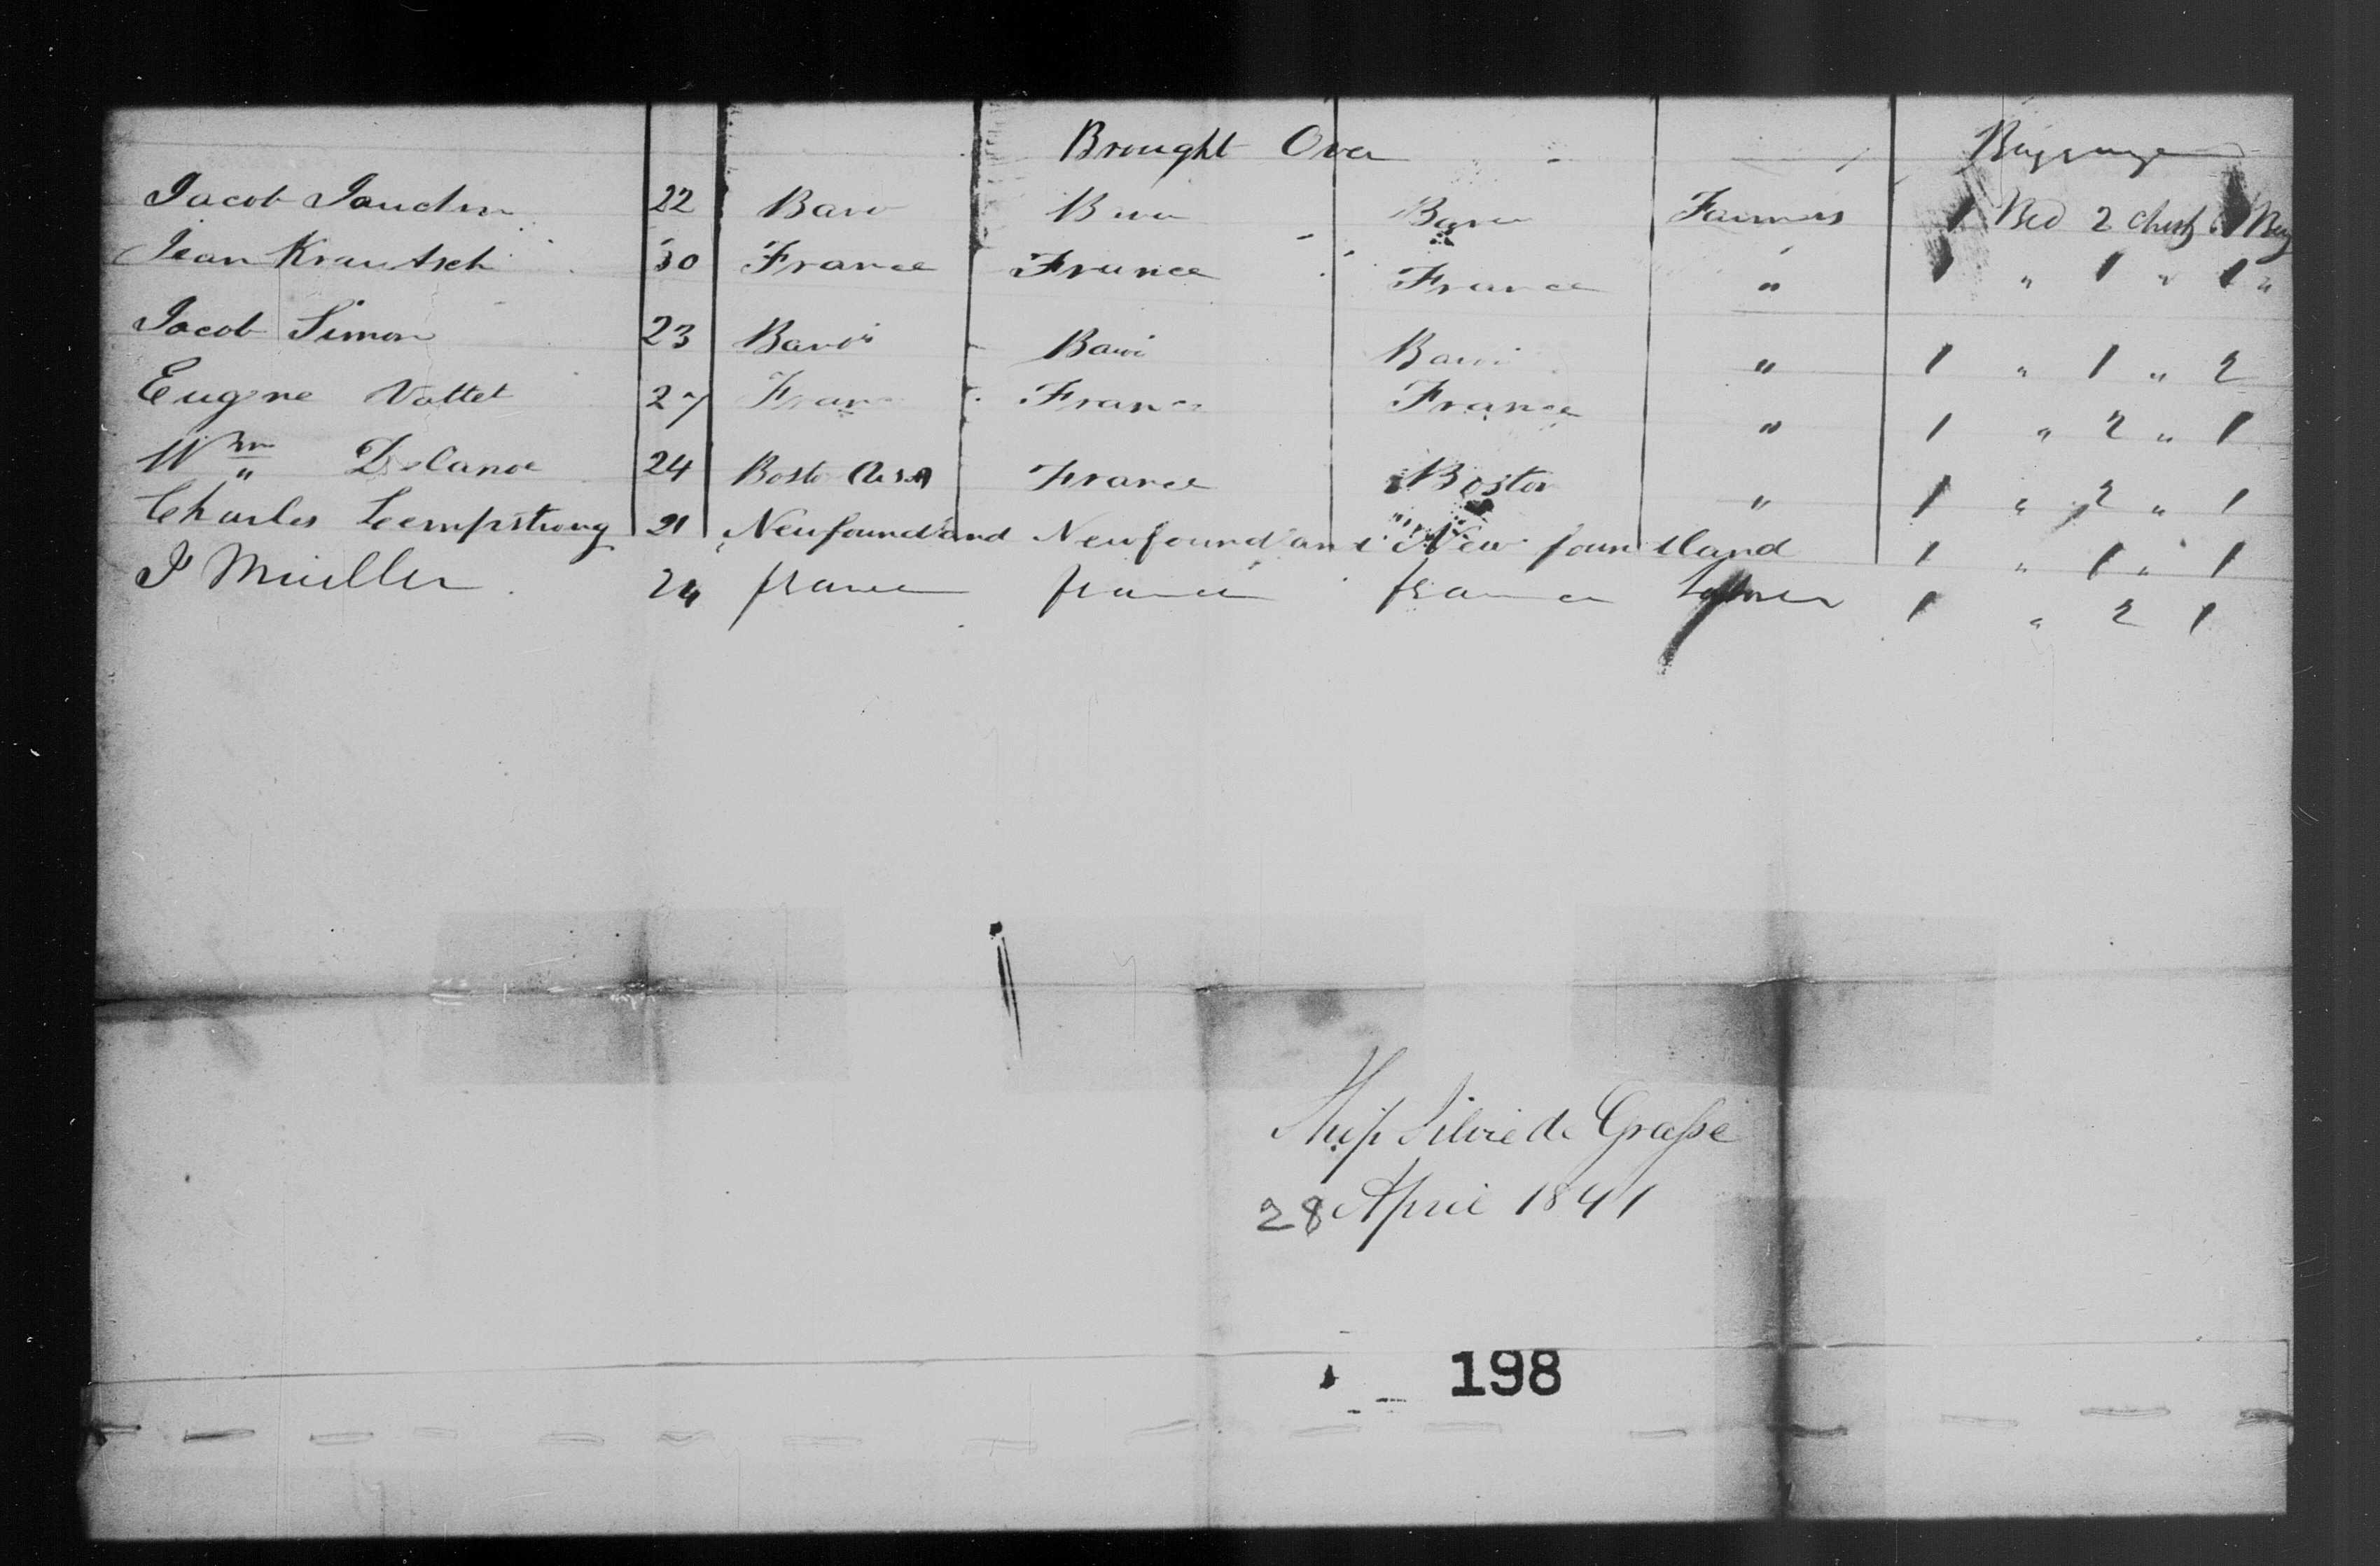 Brought Over Baggage
Jacob 22 Farmers 1 Bed 2 Chest 1 Bag
Jean Krautsch 30 France France France " 1 " 1 " 1 "
Jacob Simon 23 Bavi Bavi " 1 " 1 " 2
Eugene Vattet 27 Franc France France " 1 " 2 " 1
Wm Delanoe 24 Bosto USA France Boston " 1 " 2 " 1
Charles Lempstrong 21 Newfoundland Newfoundland New foundland 1 " 1 " 1
J Muller 24 france france france 1 " 2 1
Ship Silvie de Grasse
28 April 1841
198